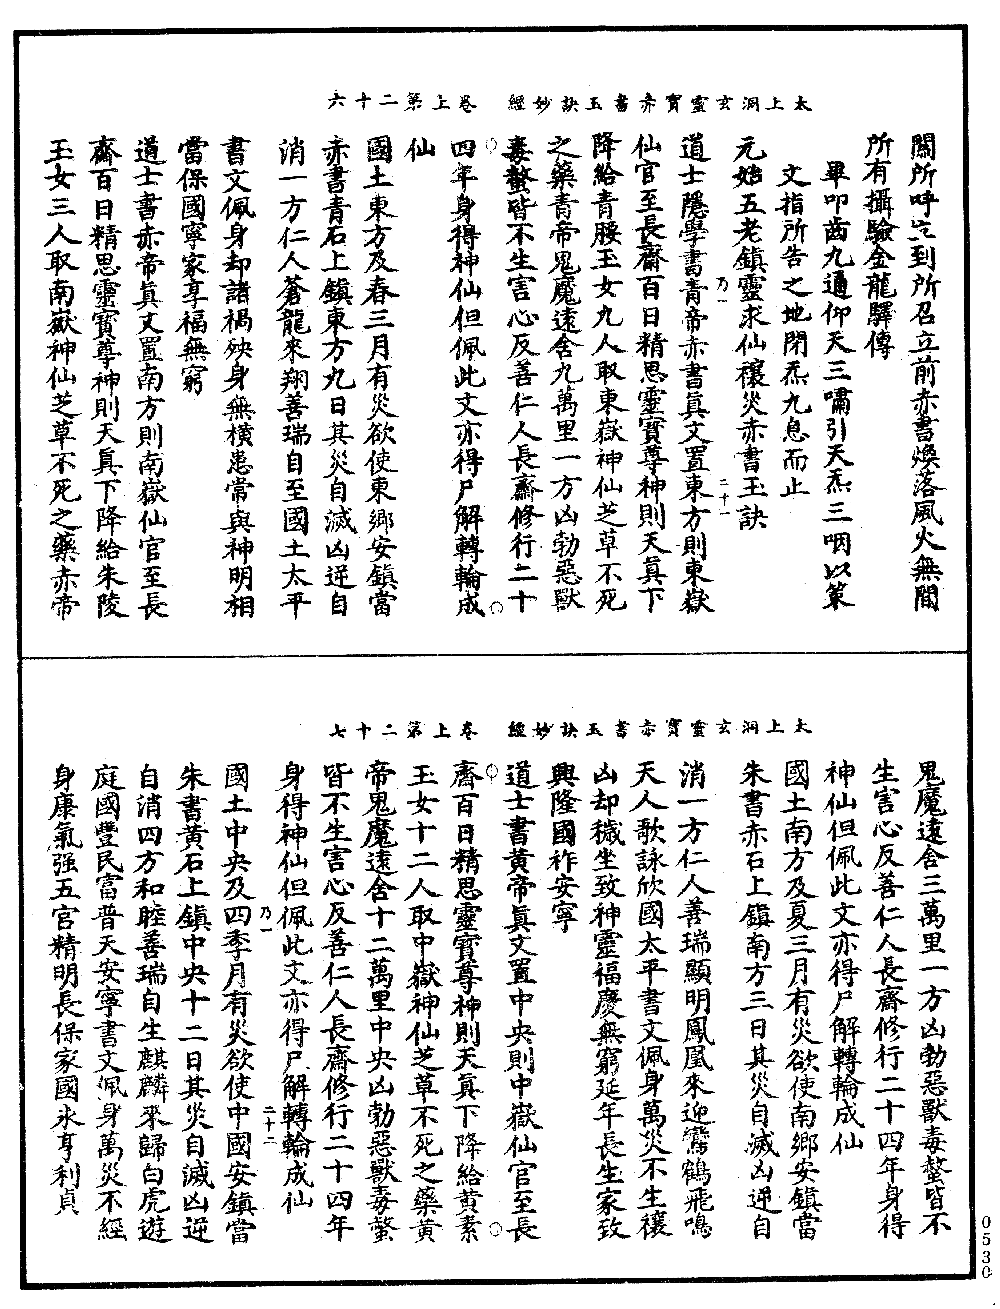 太上洞玄靈寶赤書玉訣妙經　卷上第二十六
關所呼立到所召立前赤書煥落風火無閒
所有攝驗金龍驛傳
畢叩齒九通仰天三嘯引天炁三咽以策
文指所告之地閉炁九息而止
元始五老鎮靈求仙禳災赤書玉訣
乃一
二十一
道士隱學書青帝赤書真文置東方則東嶽
仙官至長齋百日精思靈寶尊神則天真下
降給青腰玉女九人取東嶽神仙芝草不死
之藥青帝鬼魔遠舍九萬里一方凶勃惡獸
毒螫皆不生害心反善仁人長齋修行二十
四年身得神仙但佩此文亦得尸解轉輪成
仙
國土東方及春三月有災欲使東鄉安鎮當
赤書青石上鎮東方九日其災自滅凶逆自
消一方仁人蒼龍來翔善瑞自至國土太平
書文佩身却諸禍殃身無橫患常與神明相
當保國寧家享福無窮
道士書赤帝真文置南方則南嶽仙官至長
齋百日精思靈寶尊神則天真下降給朱陵
玉女三人取南嶽神仙芝草不死之藥赤帝
太上洞玄靈寶赤書玉訣妙經　卷上第二十七
鬼魔遠舍三萬里一方凶勃惡獸毒螫皆不
生害心反善仁人長齋修行二十四年身得
神仙但佩此文亦得尸解轉輪成仙
國土南方及夏三月有災欲使南鄉安鎮當
朱書赤石上鎮南方三日其災自滅凶逆自
消一方仁人善瑞顯明鳳凰來迎鸞鶴飛鳴
天人歌詠欣國太平書文佩身萬災不生禳
凶却穢坐致神靈福慶無窮延年長生家致
興隆國祚安寧
道士書黃帝真文置中央則中嶽仙官至長
齋百日精思靈寶尊神則天真下降給黃素
玉女十二人取中嶽神仙芝草不死之藥黃
帝鬼魔遠舍十二萬里中央凶勃惡獸毒螫
皆不生害心反善仁人長齋修行二十四年
身得神仙但佩此文亦得尸解轉輪成仙
乃一
二十二
國土中央及四季月有災欲使中國安鎮當
朱書黃石上鎮中央十二日其災自滅凶逆
自消四方和睦善瑞自生麒麟來歸白虎遊
庭國豐民富普天安寧書文佩身萬災不經
身康氣強五官精明長保家國永亨利貞
0530